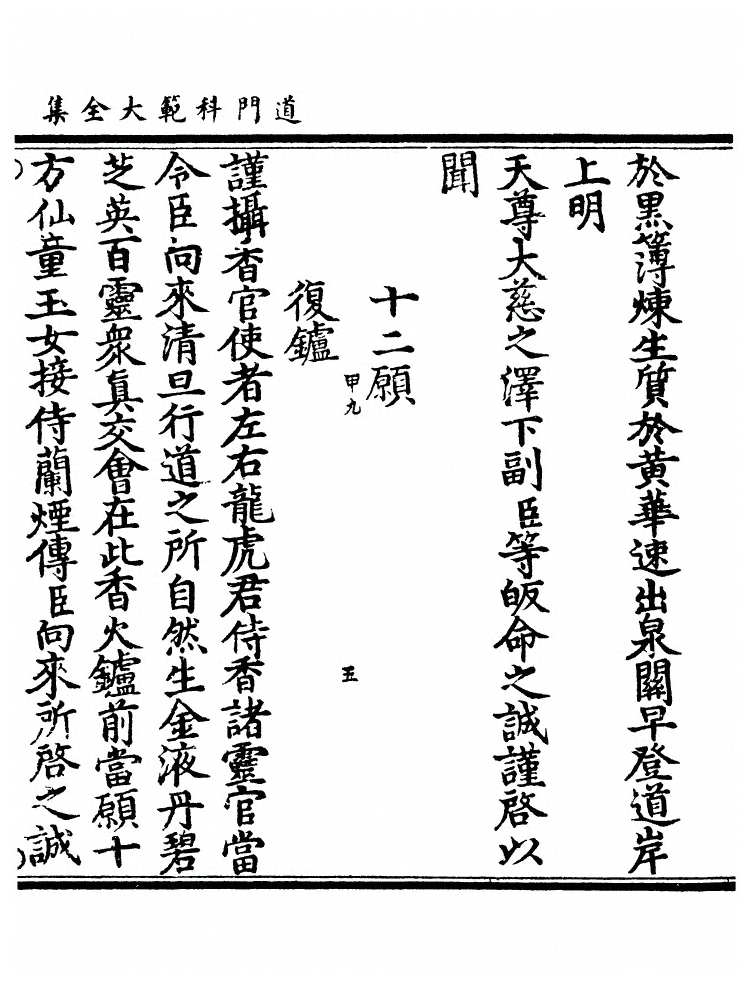 道門科範大全集
於黒簿煉生質於黄華速出泉關早登道岸
上明
天尊大慈之澤下副臣等皈命之誠謹啓以
聞
十二願
甲九
五
復鑪
謹攝香官使者左右龍虎君侍香諸靈官當
令臣向來清旦行道之所自然生金液丹碧
芝英百靈衆真交會在此香火鑪前當願十
方仙童玉女接侍蘭煙傳臣向來所啓之誠